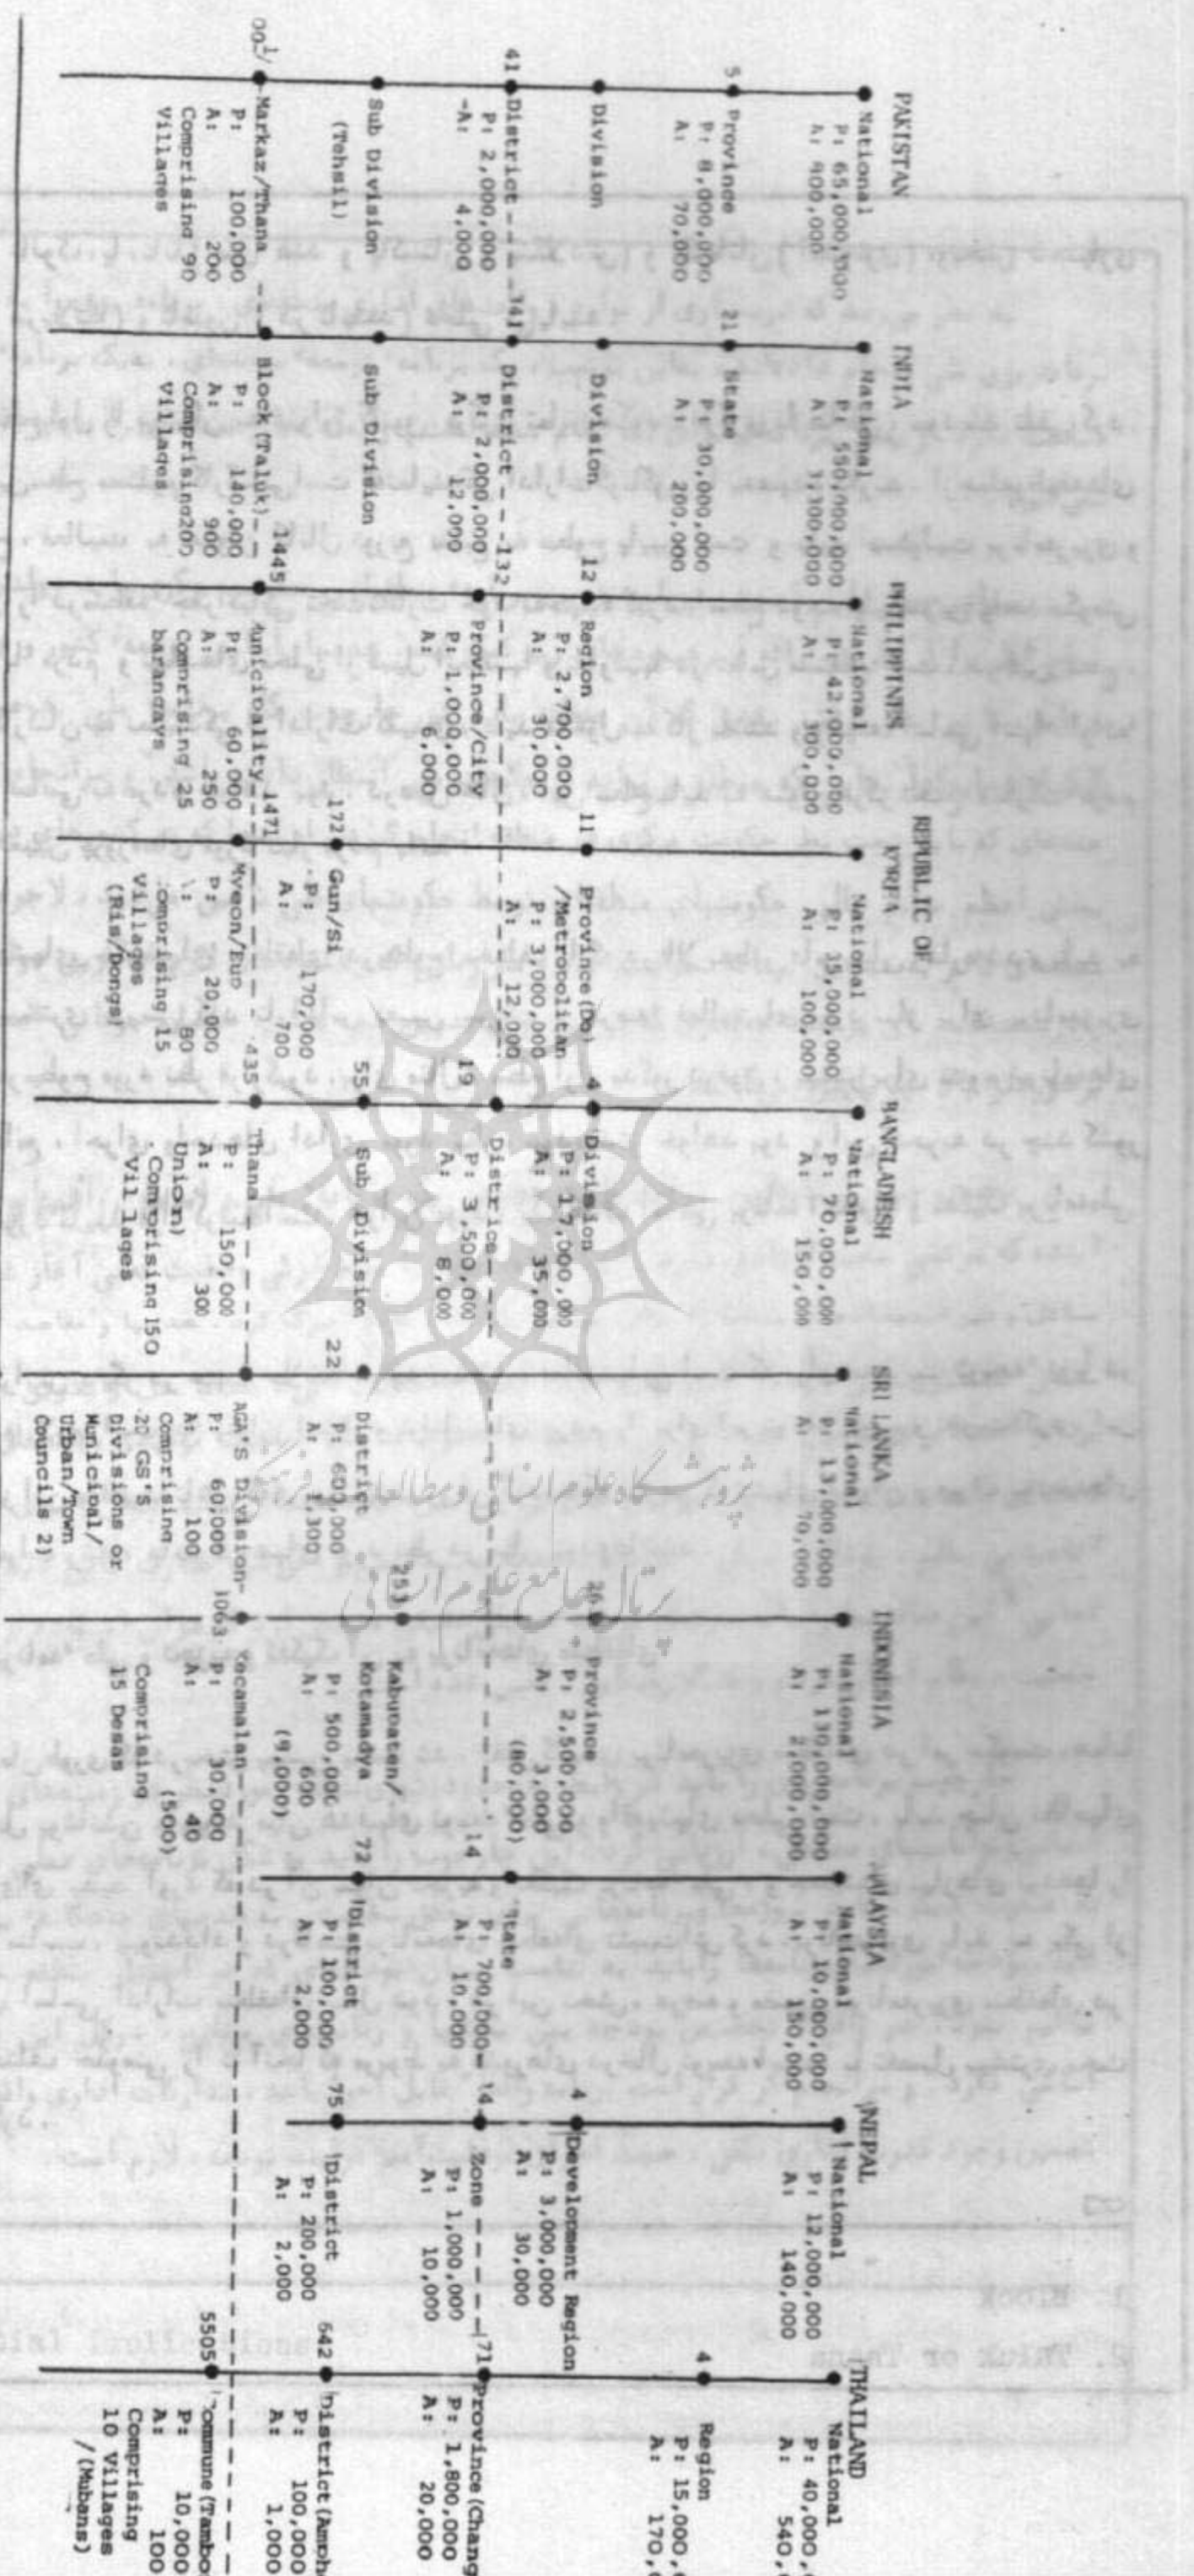 PAKISTAN
National
P: 65,000,000
A: 800,000
5 Province
P: 8,000,000
A: 70,000
Division
41 District
P: 2,000,000
A: 4,000
Sub Division
(Tehsil)
Markaz/Thana
P: 100,000
A: 200
Comprising 90
Villages
INDIA
National
P: 550,000,000
A: 3,300,000
21 State
P: 30,000,000
A: 200,000
Division
341 District
P: 2,000,000
A: 12,000
Sub Division
Block (Taluk)
P: 140,000
A: 900
Comprising 200
Villages
PHILIPPINES
National
P: 42,000,000
A: 300,000
12 Region
P: 2,700,000
A: 30,000
132 Province/City
P: 1,000,000
A: 6,000
1445 Municipality
P: 60,000
A: 250
Comprising 25
barangays
REPUBLIC OF
KOREA
National
P: 35,000,000
A: 100,000
11 Province (Do)
/Metropolitan
P: 3,000,000
A: 12,000
172 Gun/Si
P: 170,000
A: 700
1471 Myeon/Eup
P: 20,000
A: 80
Comprising 15
Villages
(Ris/Dongs)
BANGLADESH
National
P: 70,000,000
A: 150,000
4 Division
P: 17,000,000
A: 35,000
19 Districe
P: 3,500,000
A: 8,000
55 Sub Division
435 Thana
P: 150,000
A: 300
Union)
Comprising 150
Vil lages
SRI LANKA
National
P: 13,000,000
A: 70,000
22 District
P: 600,000
A: 3,300
AGA'S Division
P: 60,000
A: 100
Comprising
20 GS'S
Divisions or
Municipal/
Urban/Town
Councils 2)
INDONESIA
National
P: 130,000,000
A: 2,000,000
26 Province
P: 2,500,000
A: 3,000
(80,000)
Kabupaten/
Kotamadya
P: 500,000
A: 600
(9,000)
1063 Kecamalan
P: 30,000
A: 40
(500)
Comprising
15 Desas
MALAYSIA
National
P: 10,000,000
A: 150,000
14 State
P: 700,000
A: 10,000
72 District
P: 100,000
A: 2,000
NEPAL
National
P: 12,000,000
A: 140,000
4 Development Region
P: 3,000,000
A: 30,000
14 Zone
P: 1,000,000
A: 10,000
75 District
P: 200,000
A: 2,000
THAILAND
National
P: 40,000,
A: 540,
4 Region
P: 15,000,
A: 170,
71 Province (Chang
P: 1,800,000
A: 20,000
642 District (Amph
P: 100,000
A: 1,000
5505 Commune (Tambo
P: 10,000
A: 100
Comprising
10 Villages
/(Mubans)
پژوهشگاه علوم انسانی و مطالعات فرهنگی
پرتال جامع علوم انسانی